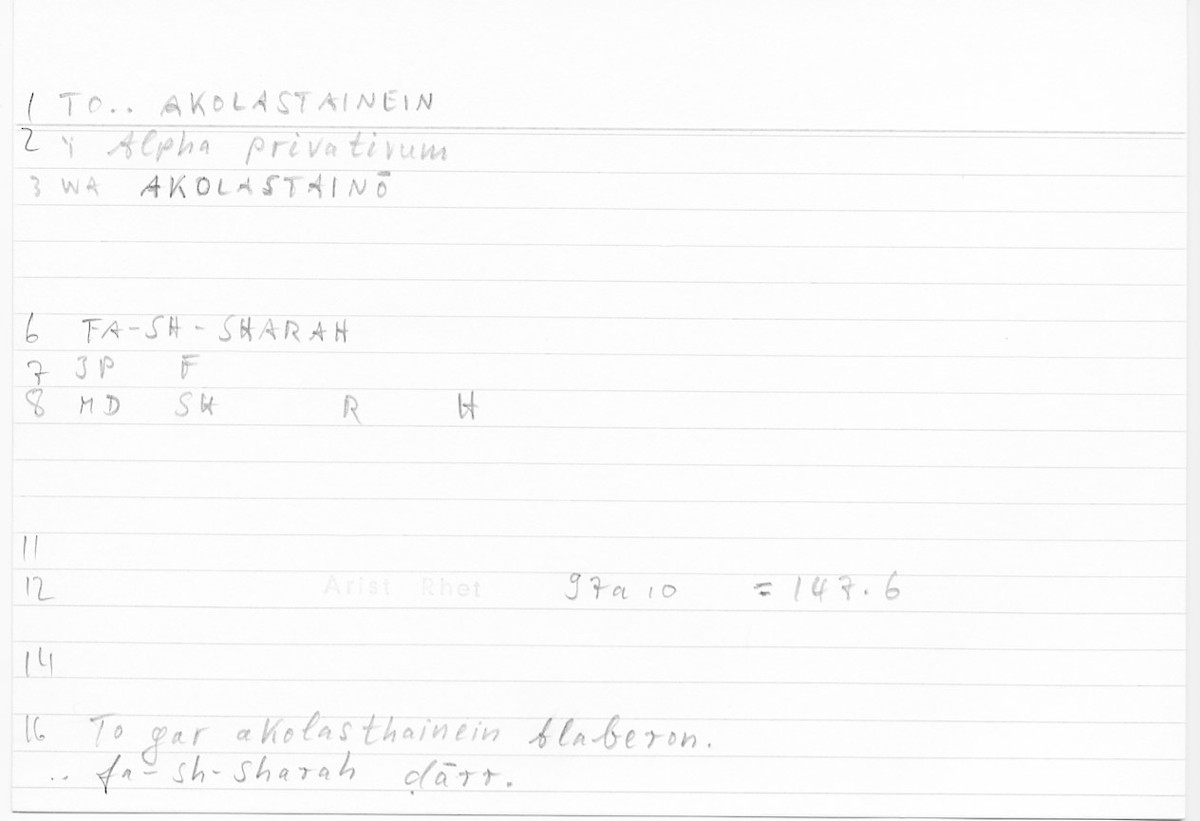 1 TO.. AKOLASTAINEIN
2 Alpha privativum
3 WA AKOLASTAINŌ
6 FA-SH-SHARAH
7 3P F
8 MD SH R H
11
12 Arist Rhet 97a10 = 147.6
14
16 To gar akolasthainein blaberon.
.. fa-sh-sharah ḍārr.